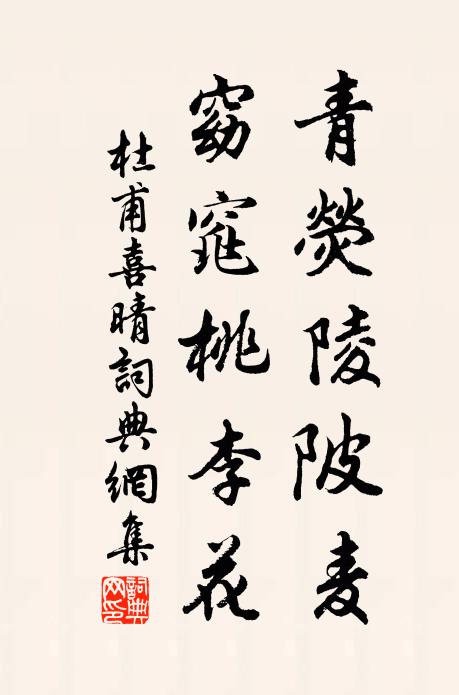 青熒陵陂麦
窈窕桃李花
杜甫喜晴詞典網集
詞典网印